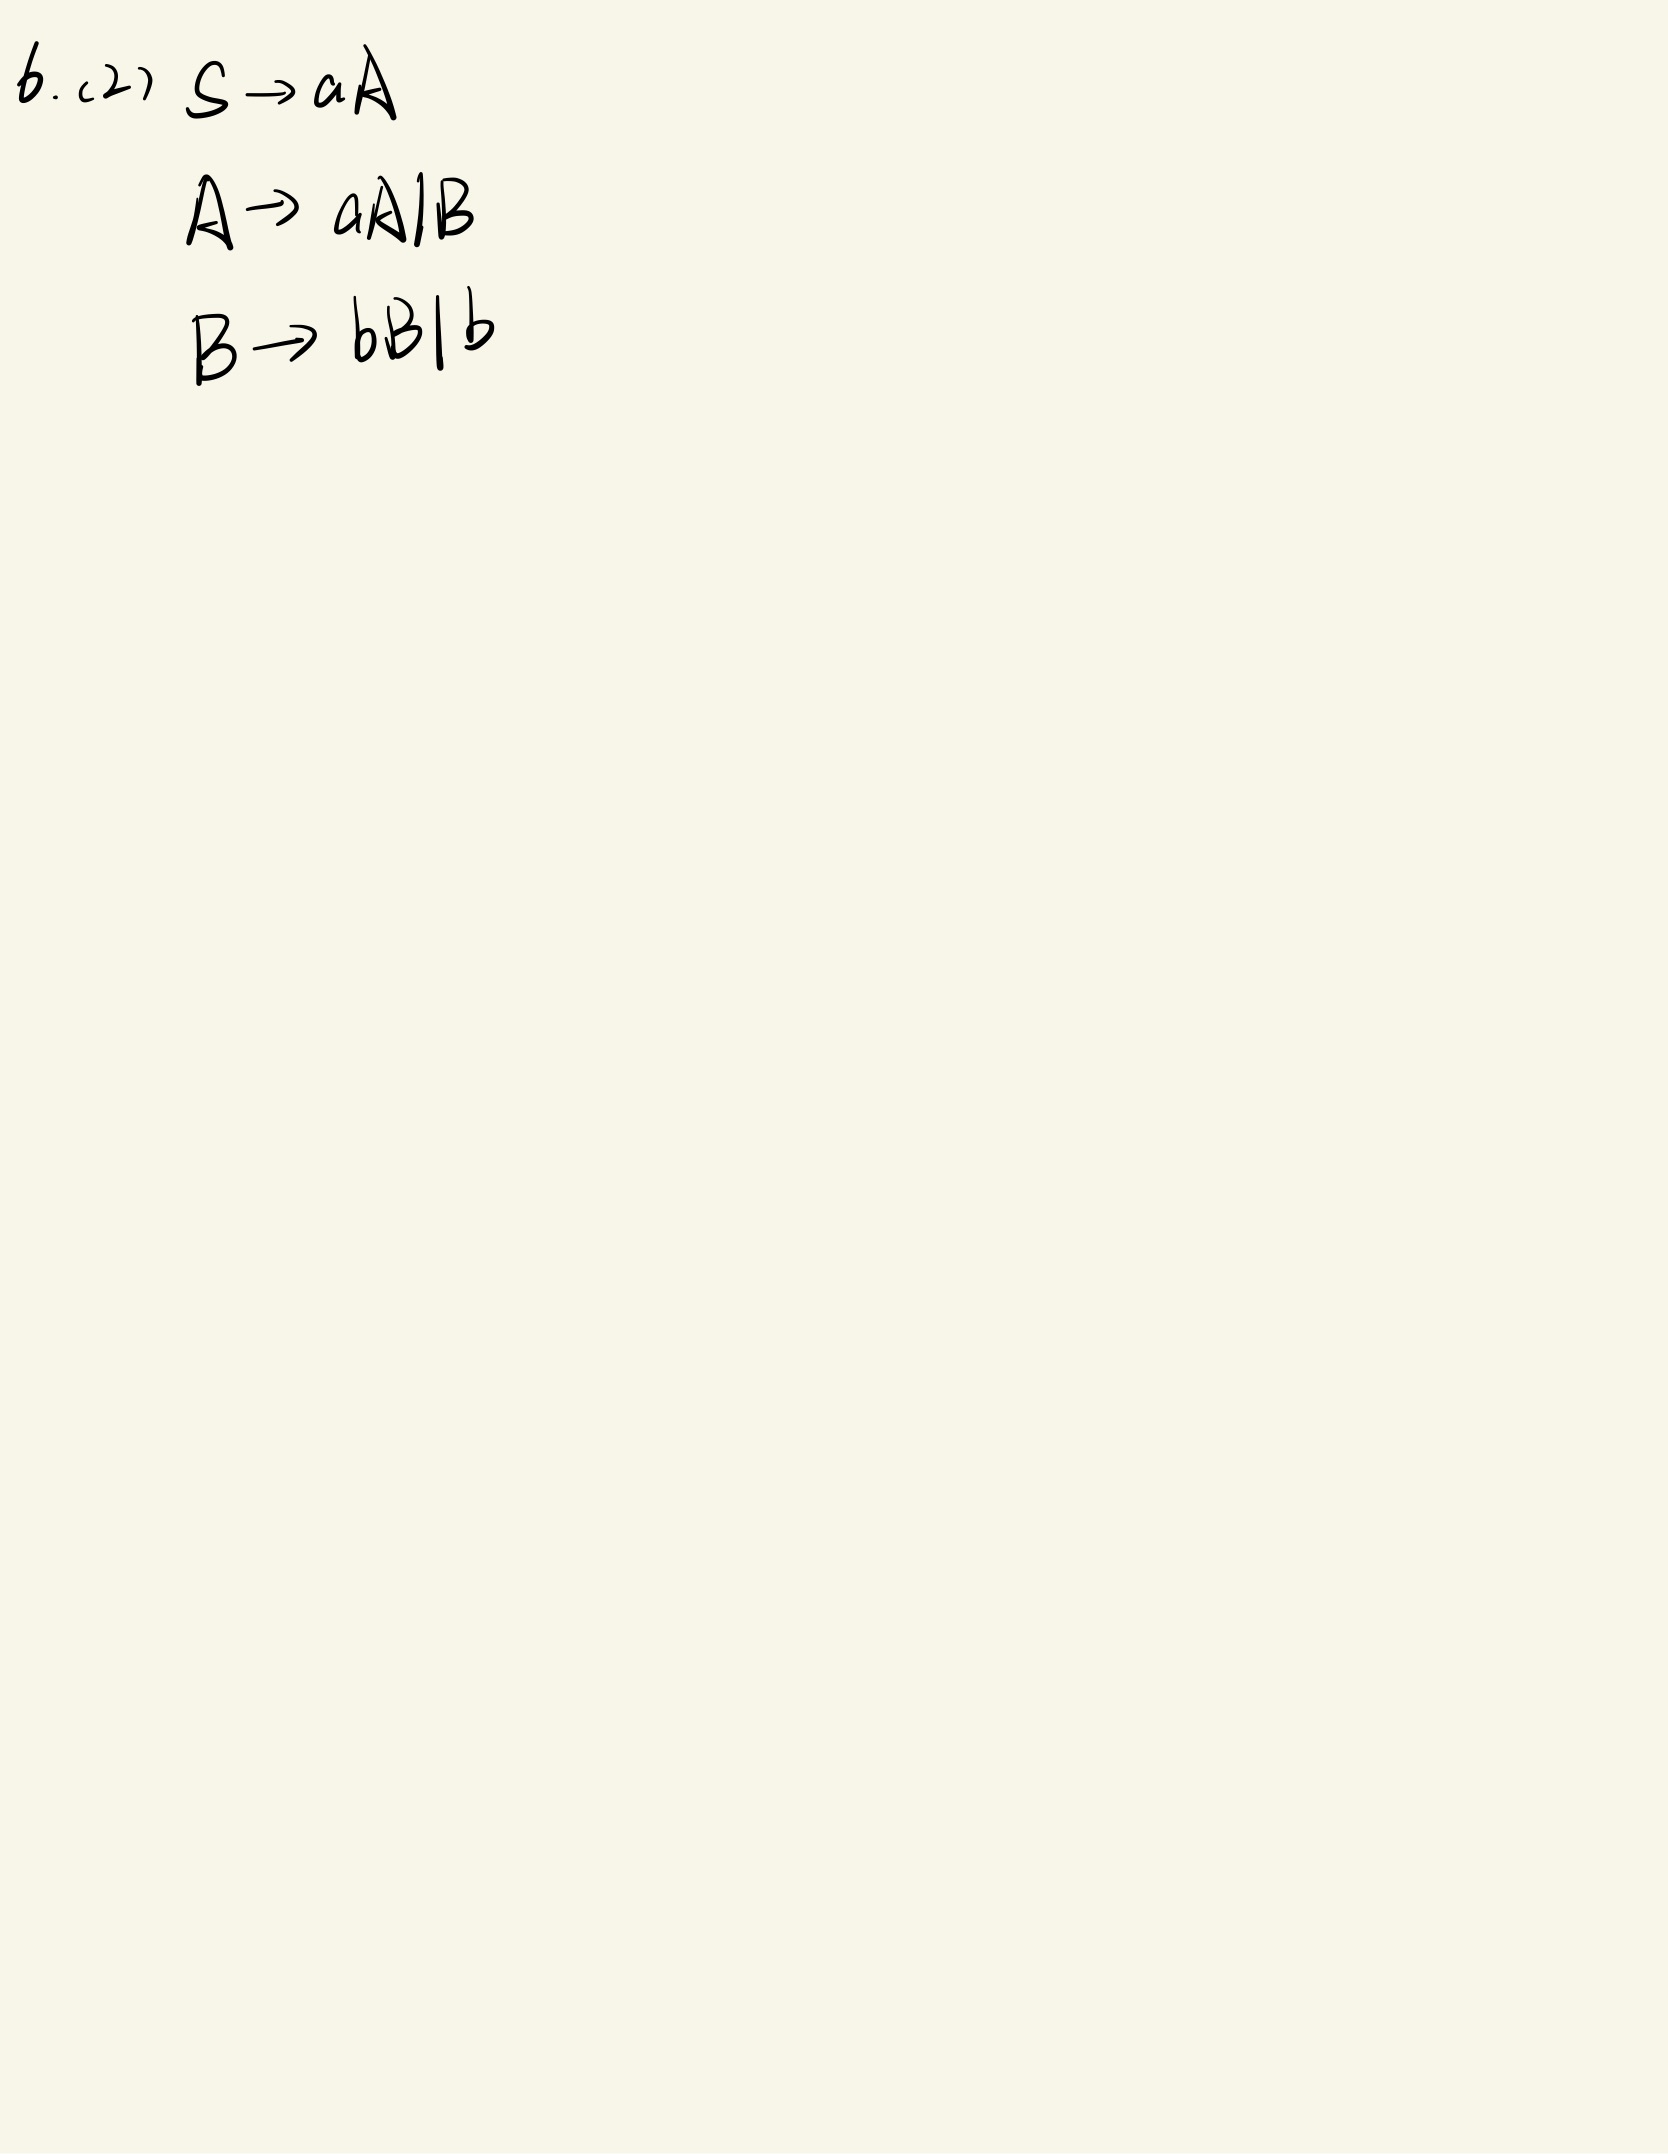 6. (2) S → aA
A → aA|B
B → bB|b